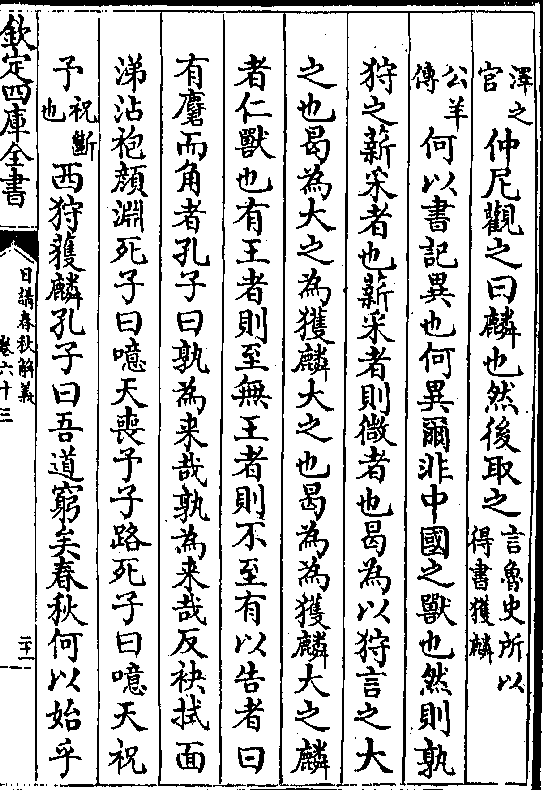 澤之官仲尼觀之曰麟也然後取之言魯史所以得書獲麟
公羊傳何以書記異也何異爾非中國之獸也然則孰
狩之薪采者也薪采者則微者也曷為以狩言之大
之也曷為大之為獲麟大之也曷為為獲麟大之麟
者仁獸也有王者則至無王者則不至有以告者曰
有麏而角者孔子曰孰為来哉孰為来哉反袂拭面
涕沾袍顏淵死子曰噫天喪予子路死子曰噫天祝
予祝斷也西狩獲麟孔子曰吾道窮矣春秋何以始乎
欽定四庫全書
日講春秋解義
卷六十三
二十一